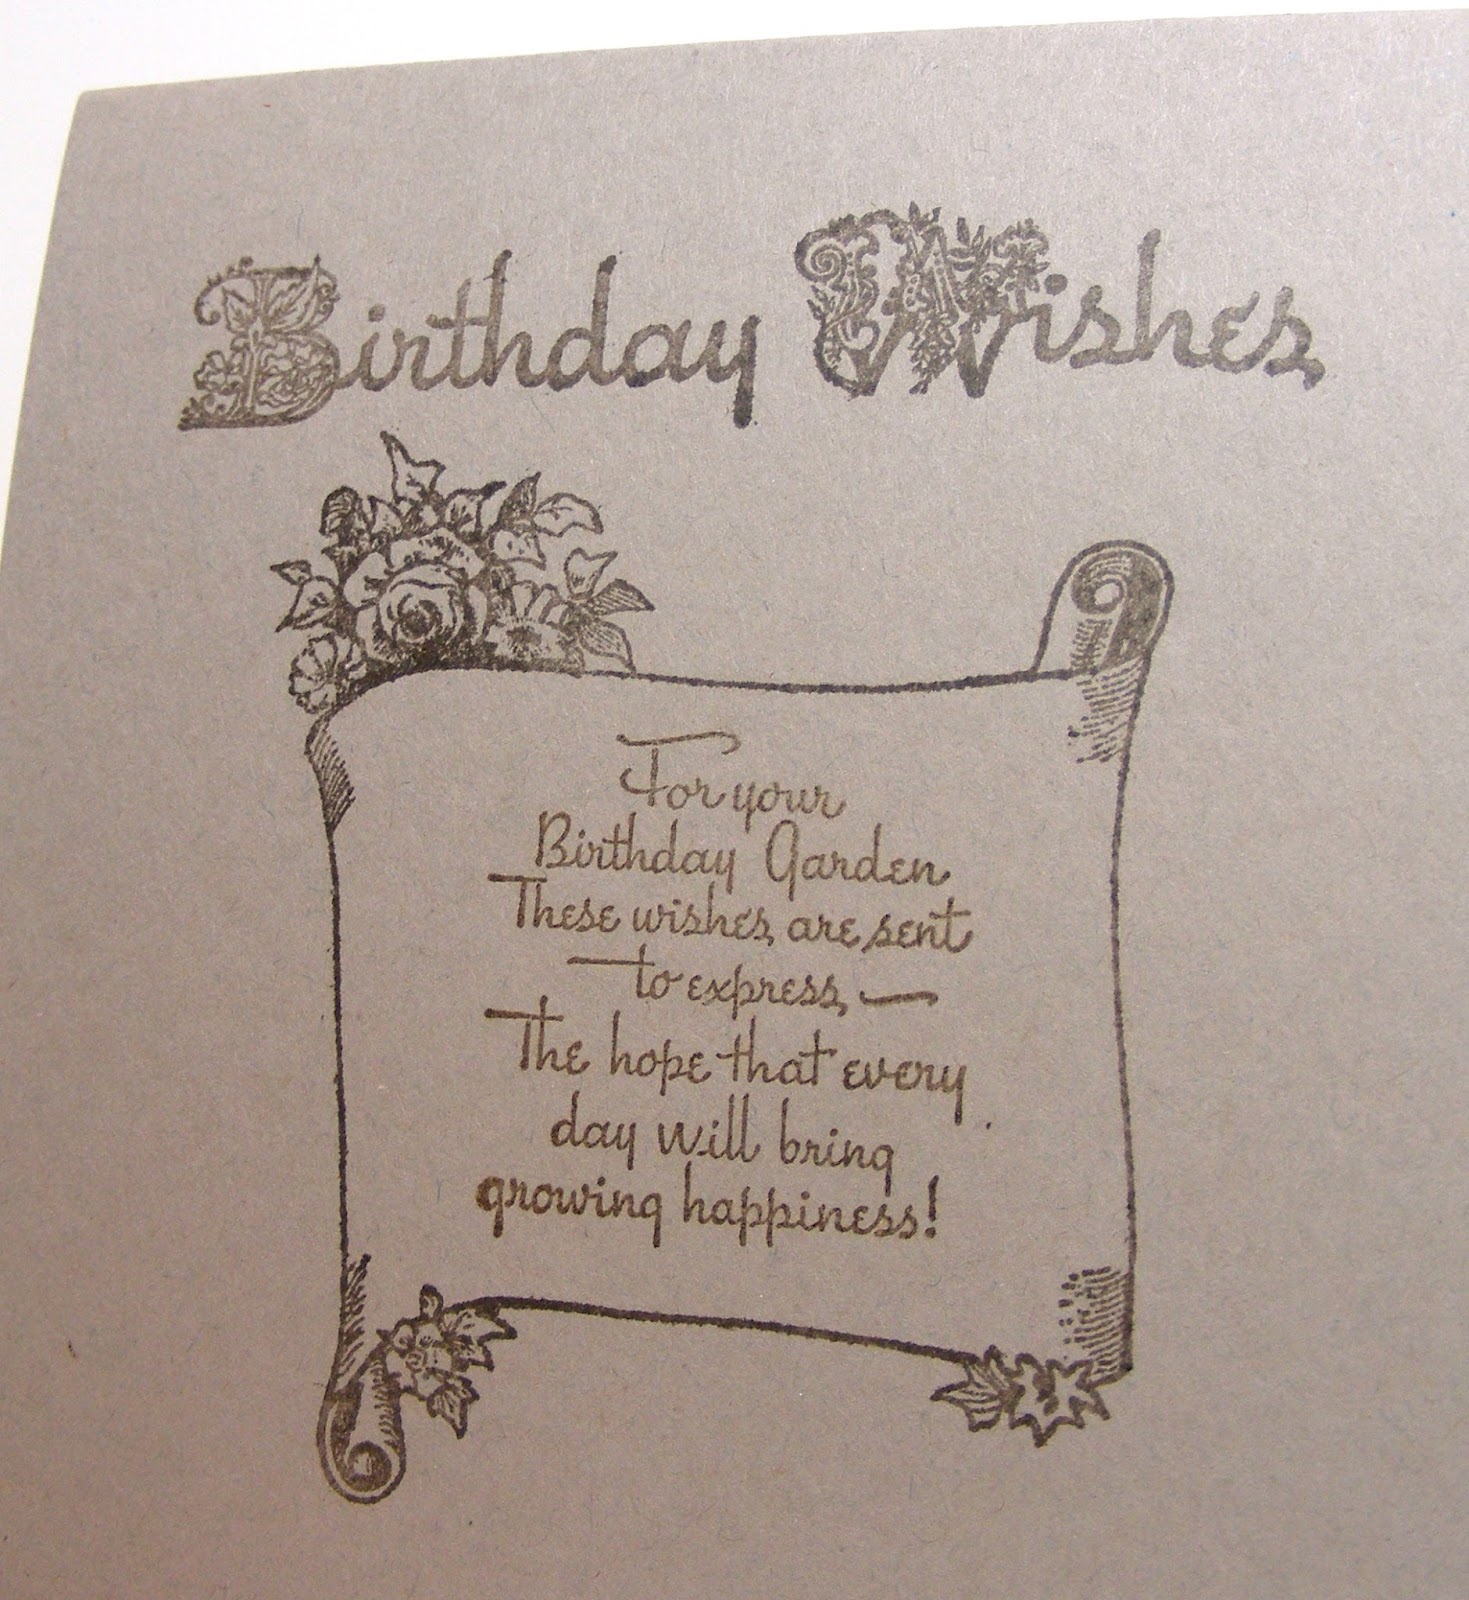 Birthday Wishes
For your
Birthday Garden
These wishes are sent
to express —
The hope that every
day will bring
growing happiness!